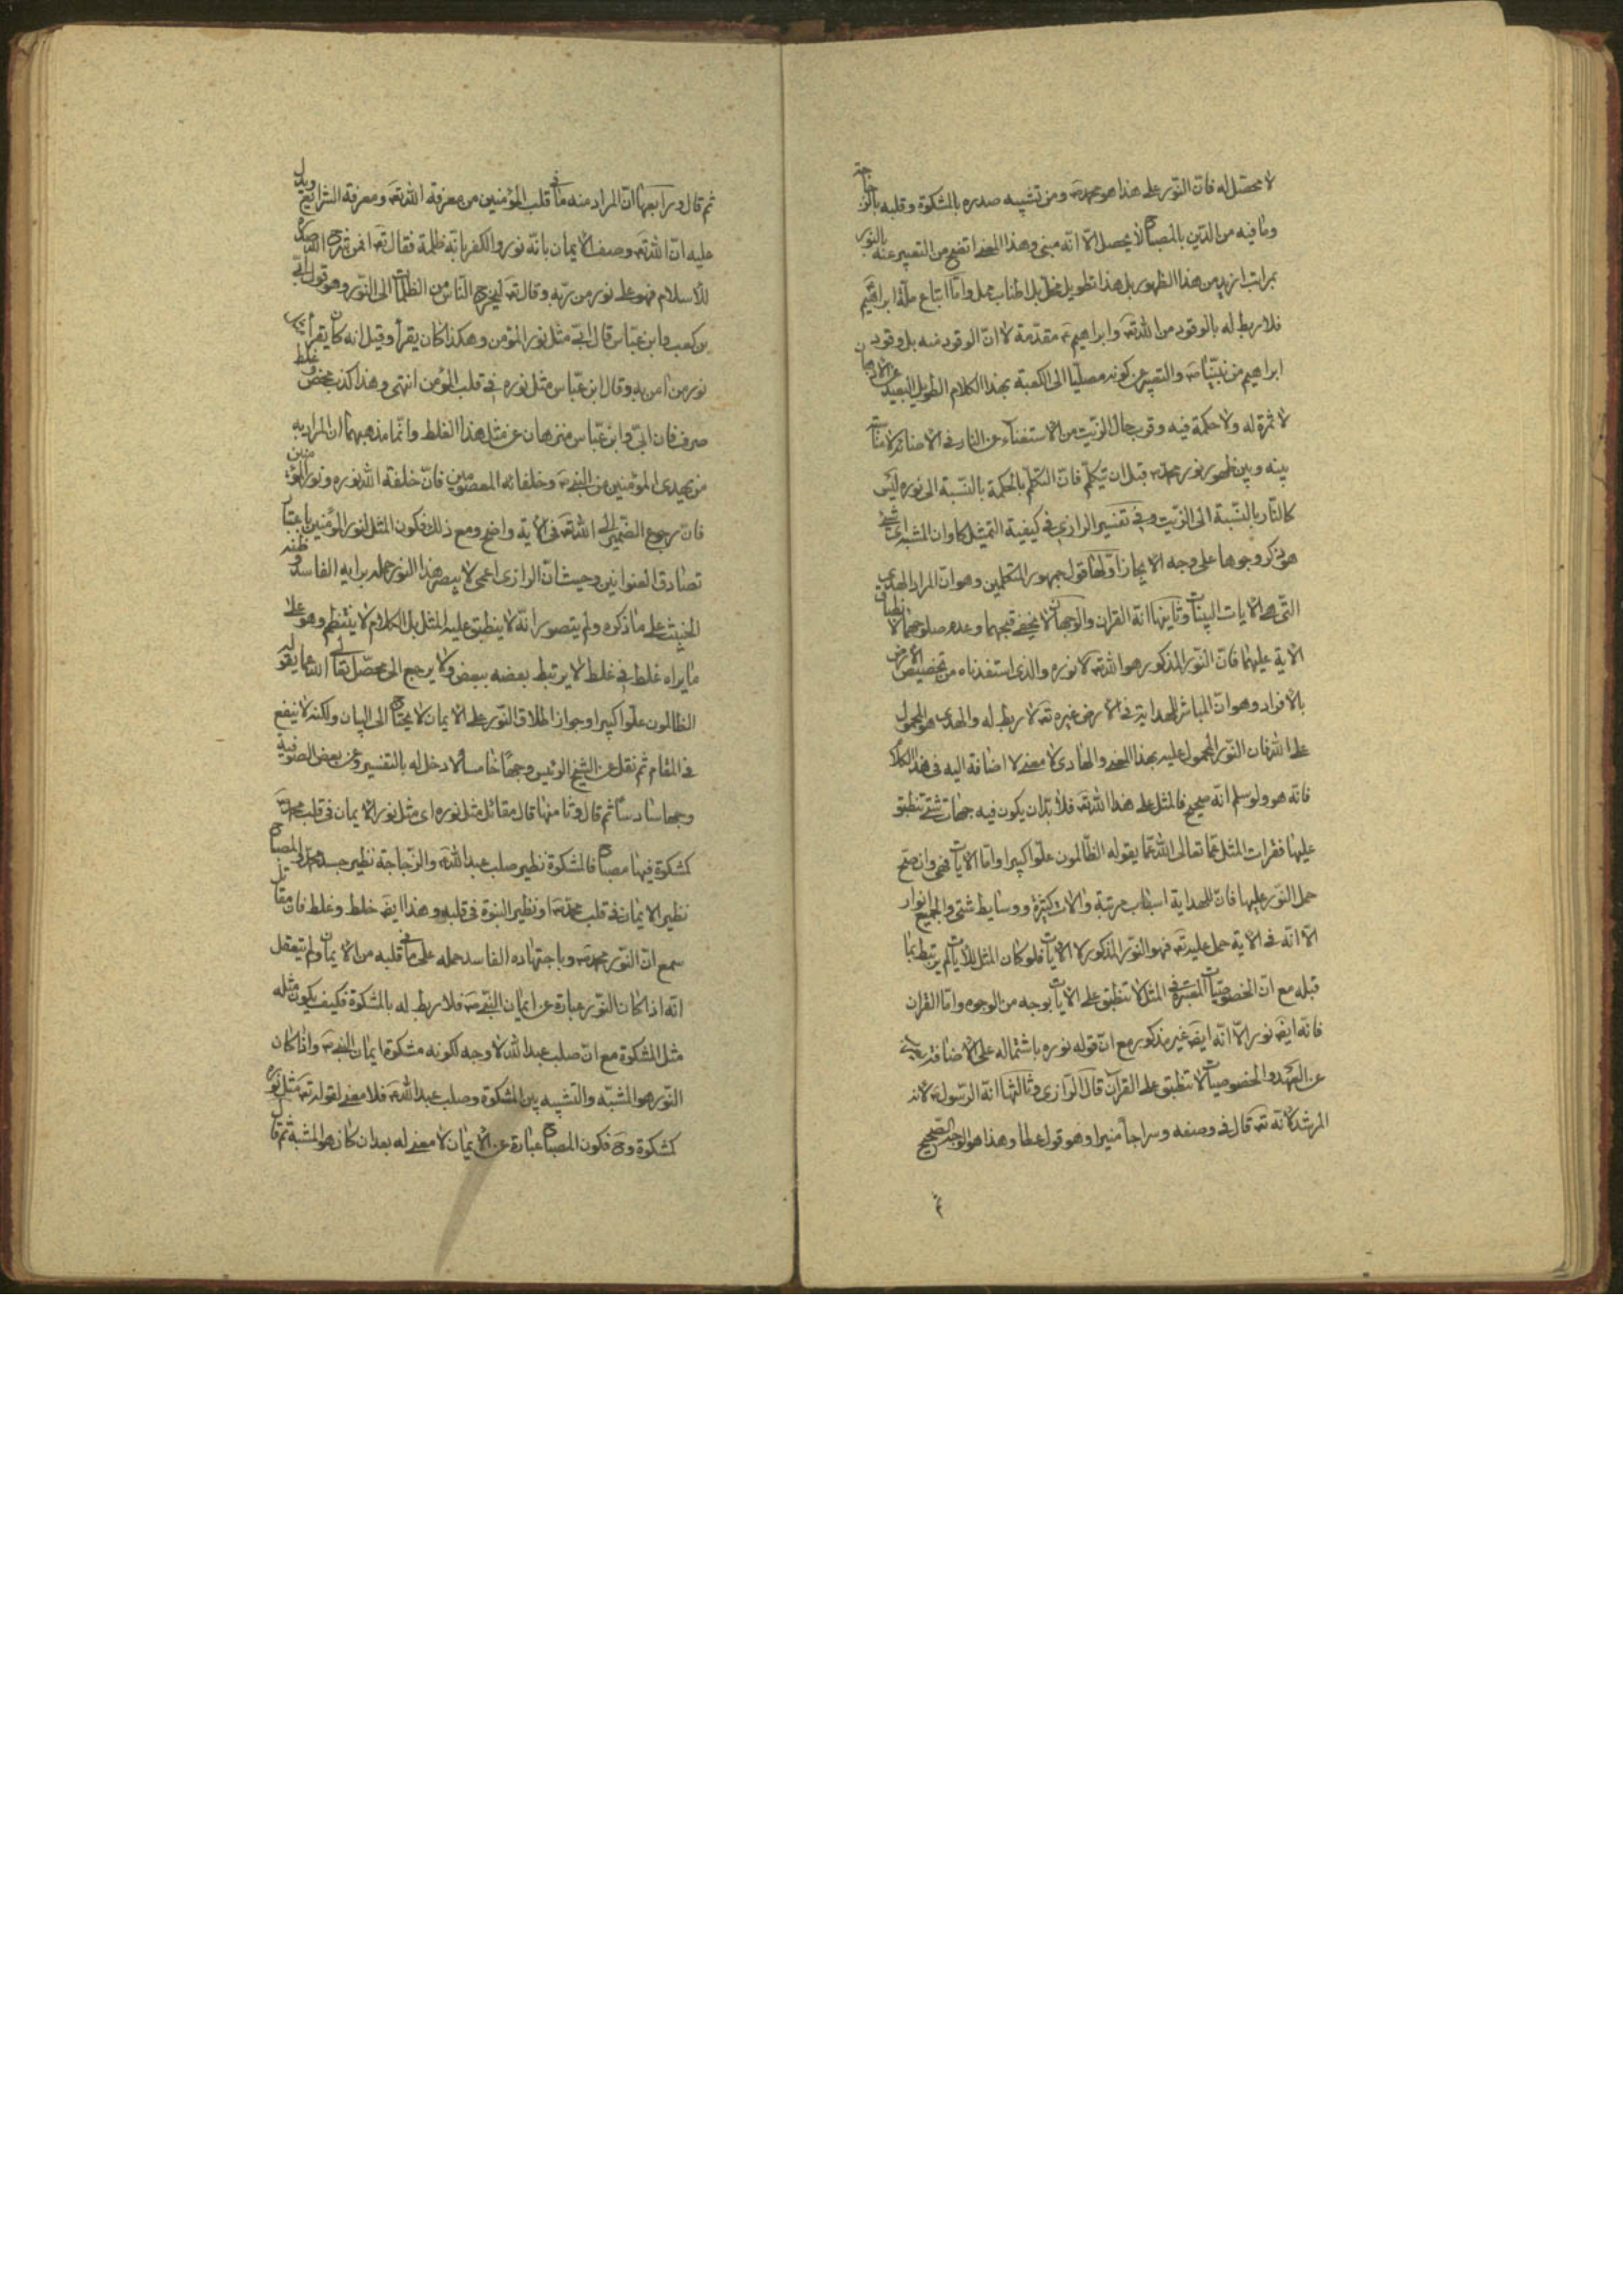 لا محصّل له فانّ النّور على هذا هو محمد ص ومن تشبيه صدره بالمشكوة وقلبه بالزجاجة
وما فيه من الدّين بالمصباح لا يحصل الّا انّه مبنى وهذا المعنى اتضح من التعبير عنه بالنور
بمراتب ازيد من هذا الظهور بل هذا تطويل مخلّ بل اطناب ممل وامّا اتباع ملّة ابراهيم
فلا ربط له بالوقود من الله تعه وابراهيم ع مقدّمة لا انّ الوقود منه بل وقود
ابراهيم من نبيّنا ص والتعبير عن كونه مصلّيا الى الكعبة بهذا الكلام الطويل البعيد عن الاذهان
لا ثمرة له ولا حكمة فيه وقرب حال الزيت من الاستغناء عن النار فى الاضائة لا مناسبة
بينه وبين ظهور نور محمد ص قبل ان يتكلّم فانّ التكلّم بالحكمة بالنّسبة الى نوره ليس
كالنّار بالنّسبة الى الزّيت وفى تفسير الرازى فى كيفية التمثيل كا وان المشبه اى شئ
هو ذكر وجوها على وجه الايجاز اولها قول جمهور المتكلمين وهو انّ المراد الهدى
التى هى الايات البينات وثانيها انه القران والوجهان لا يخفى قبحهما وعدم صلوحهما لانطباق
الاية عليهما فانّ النّور المذكور هو الله تعه لا نوره والذى استفدناه من تخصيص الارض
بالافراد وهو انّ المباشر للهداية فى الارض غيره تعه لا ربط له والهدى هو المحمول
على الله فان النّور المحمول عليه بهذا المعنى والهادى لا معنى لاضافة اليه فى هذا الكلام
فانّه هو ولو سلم انّه صحيح فالمثل على هذا لله تعه فلا بدّ ان يكون فيه جهات شتى تنطبق
عليها فقرات المثل عمّا تعالى الله عمّا يقوله الظّالمون علوّا كبيرا وامّا الايات فهى وان صحّ
حمل النّور عليها فانّ للهداية اسباب مرتبة والات كثيرة ووسايط شتى والجميع انوار
الّا انّه فى الاية حمل عليه تعه فهو النّور المذكور لا الايات فلو كان المثل للايات لم يرتبط بما
قبله مع انّ الخصوصيات المعتبرة فى المثل لا تنطبق على الايات بوجه من الوجوه وامّا القران
فانّه ايضه نور الّا انّه ايضه غير مذكور مع انّ قوله نوره باشتماله على الاضافة
عن العهد والخصوصيات لا تنطبق على القرآن قال الرّازى وثالثها انّه الرّسول ص لانه
المرشد لانّه تعه قال فى وصفه وسراجا منيرا وهو قول عطا وهذا هو الوجه الصّحيح
ثم قال ورابعها انّ المراد منه ما فى قلب المؤمنين من معرفة الله تعه ومعرفة الشرائع ويدل
عليه انّ الله تعه وصف الايمان بانّه نور والكفر بانّه ظلمة فقال تعه افمن شرح الله صدره
للاسلام فهو على نور من ربّه وقال تعه ليخرج النّاس من الظلمات الى النّور وهو قول ابىّ
بن كعب وابن عبّاس قال ابىّ مثل نور المؤمن وهكذا كان يقرأ وقيل انه كان يقرأ
نور من آمن به وقال ابن عبّاس مثل نوره فى قلب المؤمن انتهى وهذا كذب محض وغلط
صرف فان ابىّ وابن عبّاس منزهان عن مثل هذا الغلط وانّما مذهبهما ان المراد به
من يهدى المؤمنين من النبى ص وخلفائه المعصومين فانّ خلفة الله نوره ونور المؤمنين
فانّ رجوع الضّمير الى الله تعه فى الاية واضح ومع ذلك فكون المثل لنور المؤمنين باعتبار
تصادق العنوانين وحيث انّ الرازى اعمى لا يبصر هذا النور حمله برايه الفاسد وظنه
الخبيث على ما ذكره ولم يتصور انّه لا ينطبق عليه المثل بل الكلام لا ينتظم وهو على
ما يراه غلط فى غلط لا يرتبط بعضه ببعض ولا يرجع الى محصّل تعالى الله عما يقوله
الظالمون علوّا كبيرا وجواز اطلاق النّور على الايمان لا يحتاج الى البيان ولكنه لا ينفع
فى المقام ثم نقل عن الشيخ الرئيس وجها خامسا لا دخل له بالتفسير وعن بعض الصّوفية
وجها سادسا ثم قال وثامنها قال مقاتل مثل نوره اى مثل نور الايمان فى قلب محمد ص
كمشكوة فيها مصباح فالمشكوة نظير صلب عبد الله والزّجاجة نظير جسد محمد والمصباح
نظير الايمان فى قلب محمد ص او نظير النبوة فى قلبه وهذا ايضه خلط وغلط فان مقاتل
سمع انّ النّور محمد ص وباجتهاده الفاسد حمله على ما فى قلبه من الايمان ولم يتعقل
انّه اذا كان النّور عبارة عن ايمان النّبى ص فلا ربط له بالمشكوة فكيف يكون مثله
مثل المشكوة مع انّ صلب عبد الله لا وجه لكونه مشكوة ايمان النبى ص واذا كان
النّور هو المشبّه والتّشبيه بين المشكوة وصلب عبد الله فلا معنى لقوله تعه مثل نوره
كمشكوة وح فكون المصباح عبارة عن الايمان لا معنى له بعد ان كان هو المشبة ثم قال